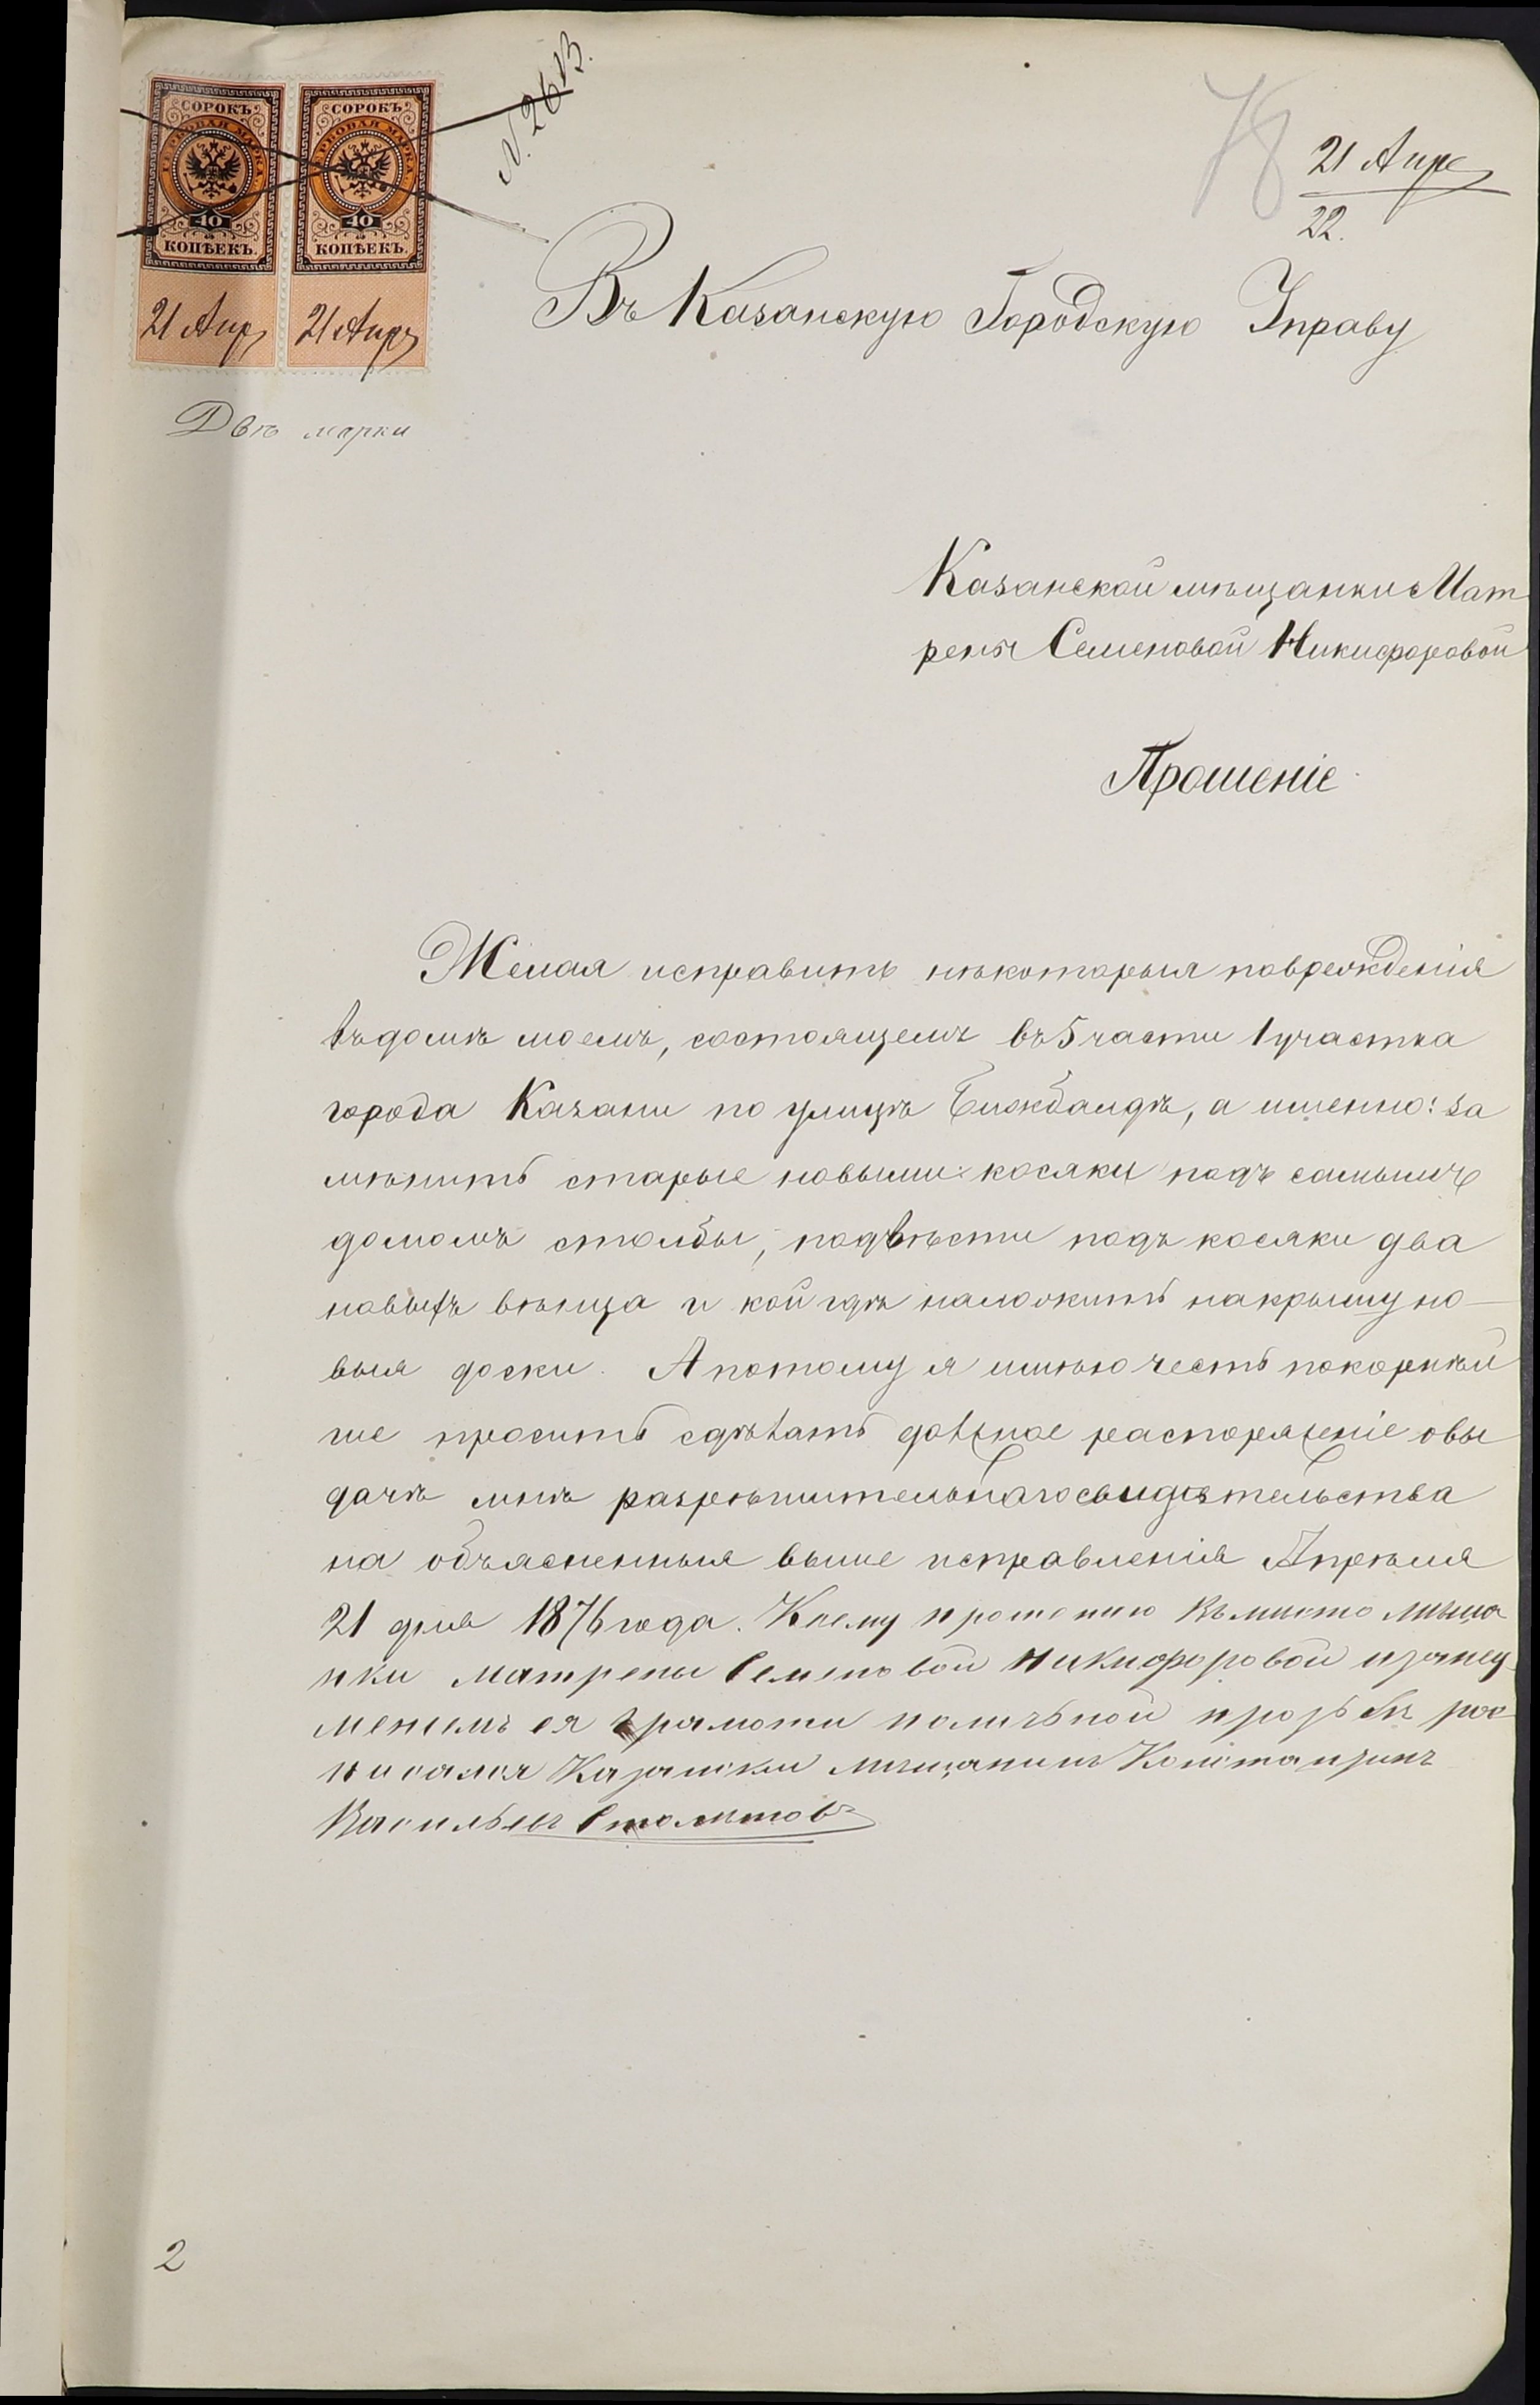 СОРОКЪ СОРОКЪ
ГЕРБОВАЯ МАРКА. ГЕРБОВАЯ МАРКА.
40 40
КОПѢЕКЪ. КОПѢЕКЪ.
21 Апр 21 Апр
Двѣ марки
21 Апре
22.
78
Въ Казанскую Городскую Управу
Казанской мѣщанки Мат
рены Семеновой Никифоровой
Прошеніе
Желая исправить нѣкоторыя поврежденія
въ домѣ моемъ, состоящемъ въ 5 части 1 участка
города Казани по улицѣ, а именно: за
мѣнить старые новыми: косяки подъ самымъ
домомъ столбы, подвѣсти подъ косяки два
новыхъ вѣнца и кой гдѣ наложить на крышу но—
выя доски. А потому я имѣю честь покорнѣй
ше просить сдѣлать должное распоряженіе о вы
дачѣ мнѣ разрѣшительнаго свидѣтельства
на объясненныя выше исправленія Апрѣля
21 дня 1876 года. К сему прошению въ мисто мѣща
нки матрены Семеновой Никифоровой
ея грамоти по личьной прозьбѣ рос
писался Казански мѣщанинъ Констанзинъ
Васильевъ Столѣтовъ
2